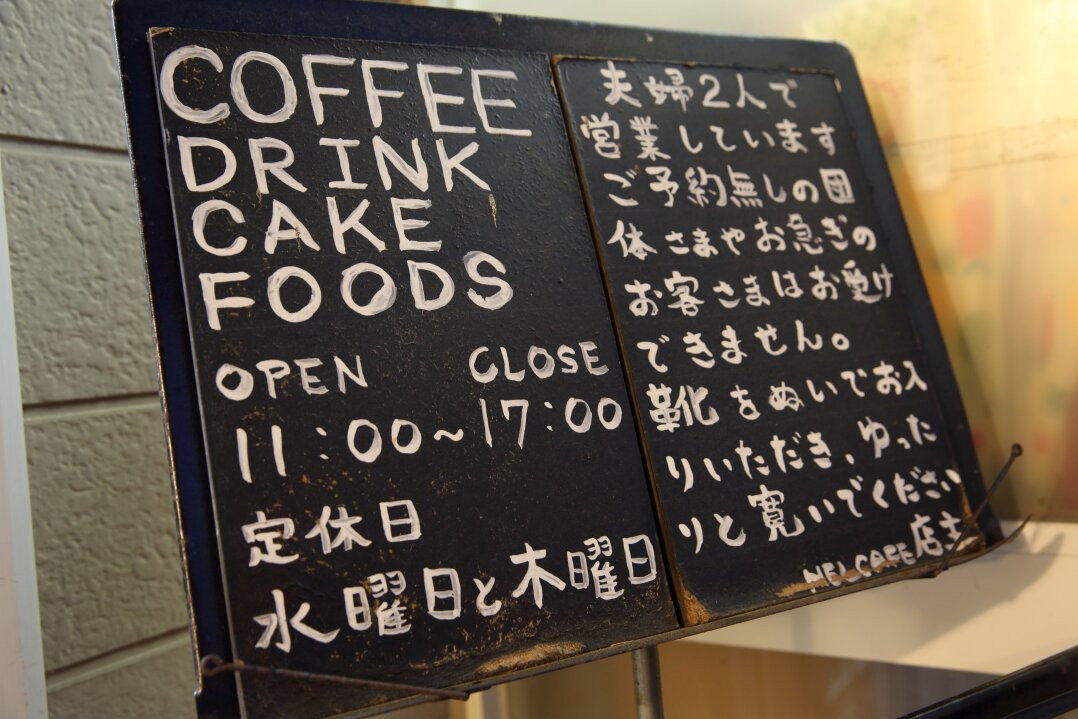 COFFEE
DRINK
CAKE
FOODS
OPEN CLOSE
11:00~17:00
定休日
水曜日と木曜日
夫婦2人で
営業しています
ご予約無しの団
体さまやお急ぎの
お客さまはお受け
できません。
靴をぬいでお入
りいただき、ゆった
りと寛いでください
店主